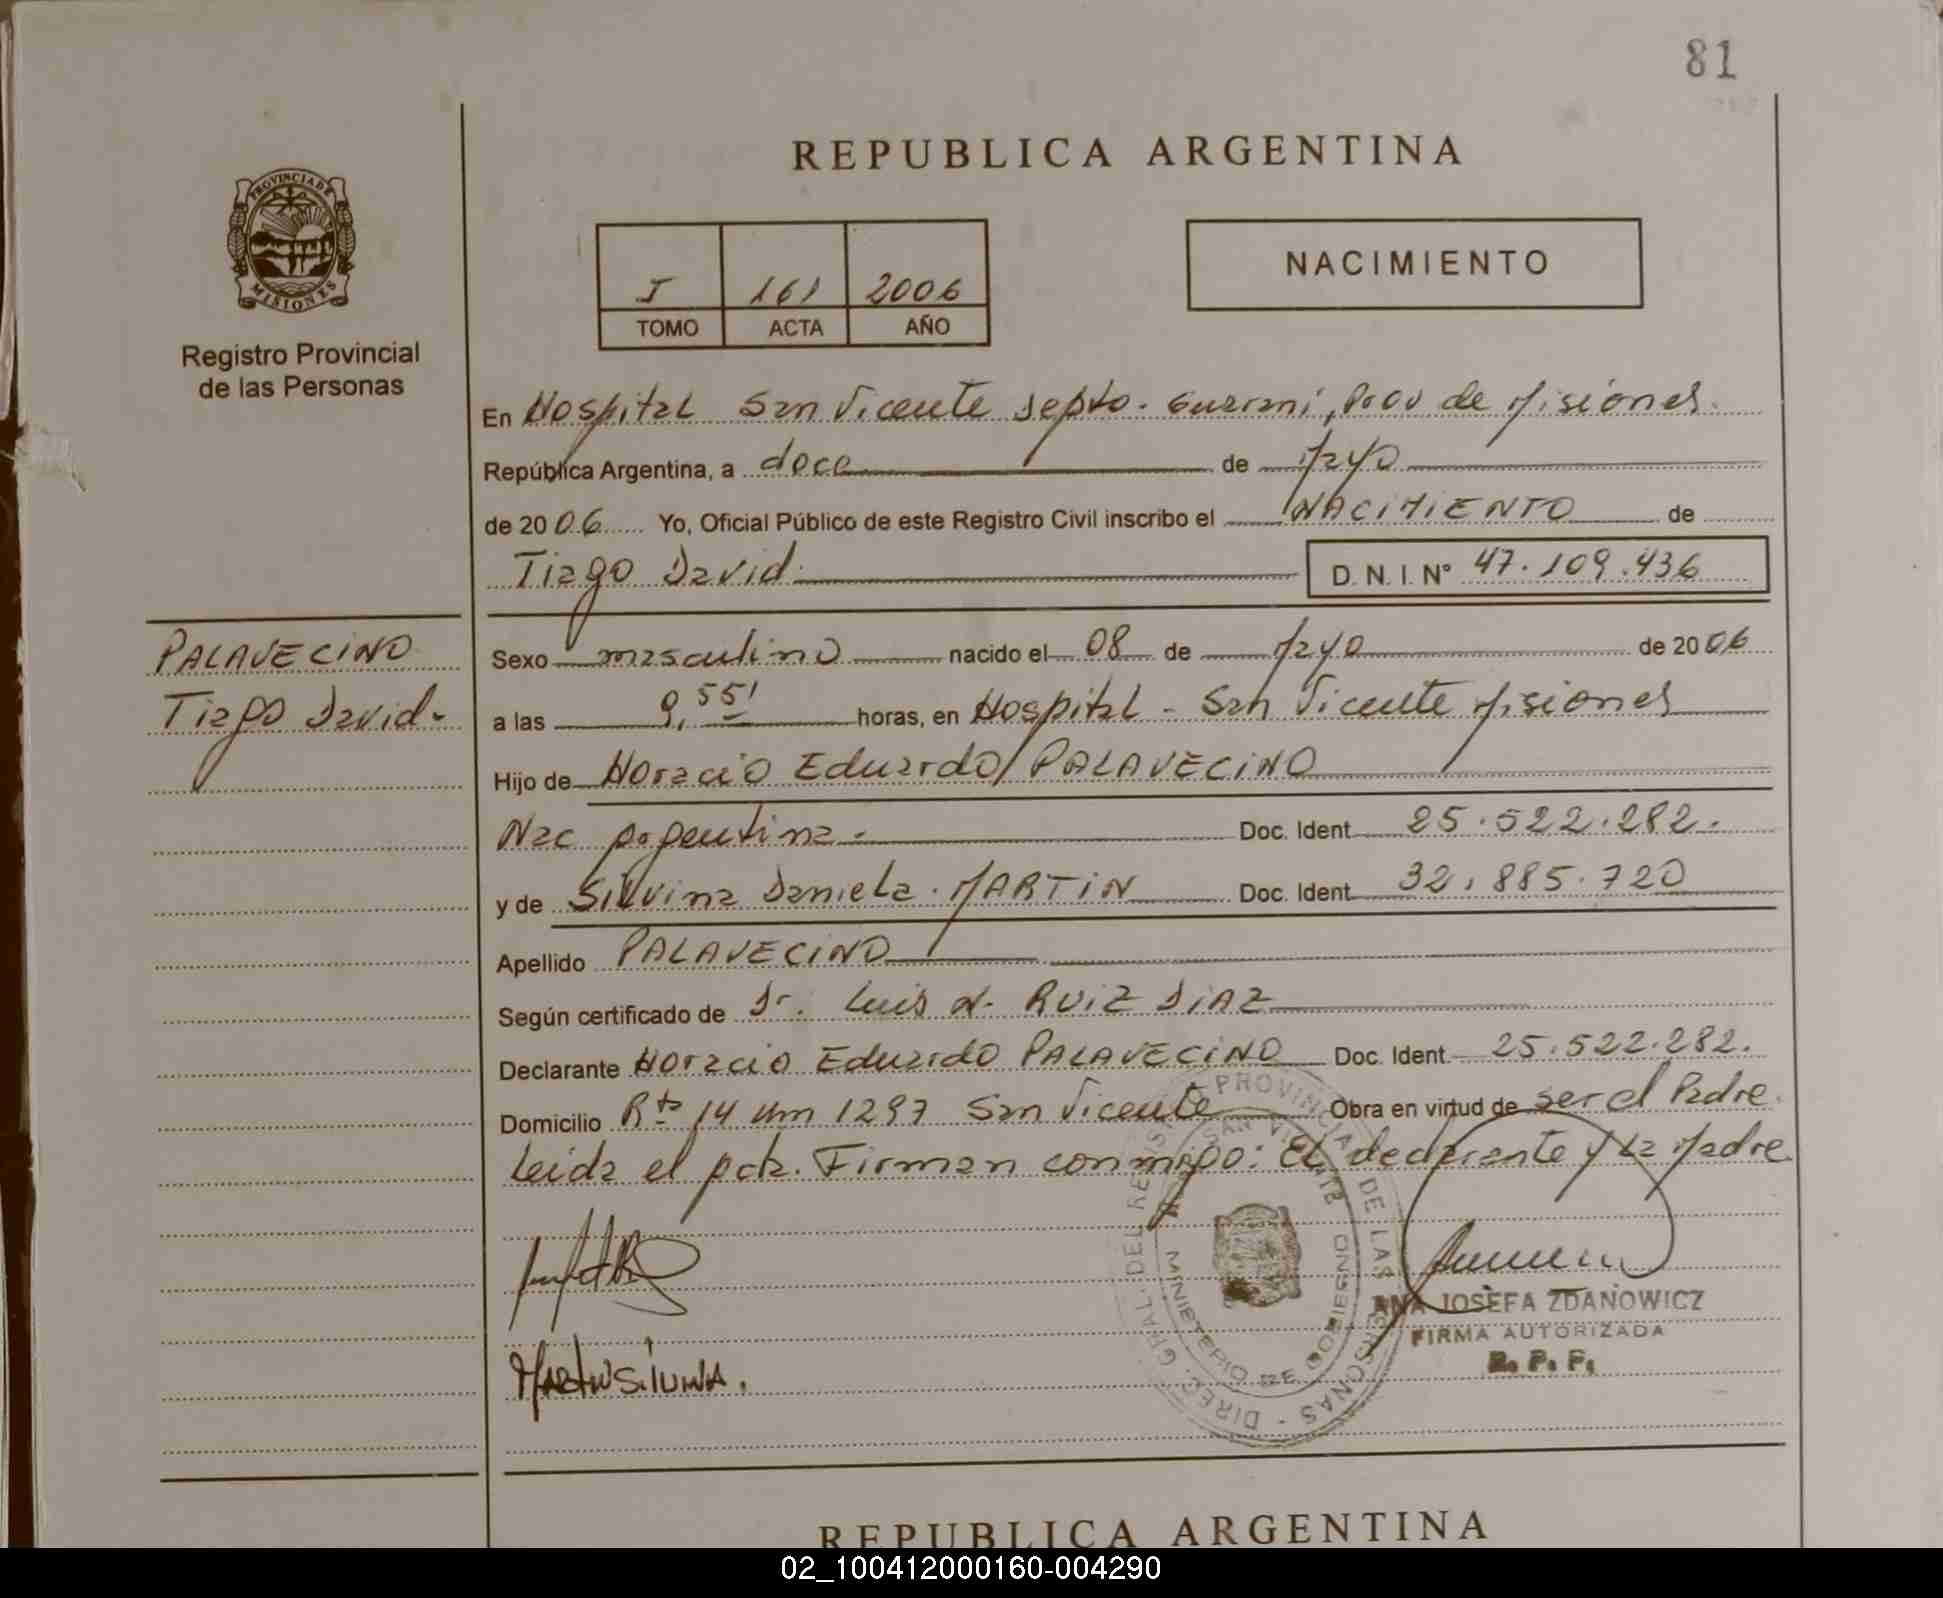 81
REPUBLICA ARGENTINA
PROVINCIA DE
MISIONES
Registro Provincial
de las Personas
I 161 2006
TOMO ACTA AÑO
NACIMIENTO
En Hospital San Vicente Depto. Guarani, Prov de Misiones.
República Argentina, a doce de Mayo
de 2006 Yo, Oficial Público de este Registro Civil inscribo el NACIMIENTO de
Tiago David. D. N. I. N° 47.109.436
PALAVECINO
Tiago David.
Sexo masculino nacido el 08 de Mayo de 2006
a las 9,55' horas, en Hospital - San Vicente Misiones
Hijo de Horacio Eduardo PALAVECINO
Nac Argentina. Doc. Ident. 25.522.282.
y de Silvina Daniela. MARTIN Doc. Ident. 32.885.720
Apellido PALAVECINO
Según certificado de Dr. Luis N. RUIZ DIAZ
Declarante Horacio Eduardo PALAVECINO Doc. Ident. 25.522.282.
Domicilio Rta 14 Km 1297 San Vicente Obra en virtud de ser el Padre.
Leida el Acta. Firman conmigo: El declarante y La Madre.
DIREC. GRAL. DEL REGIST. PROVINCIAL DE LAS PERSONAS
SAN VICENTE
MINISTERIO DE GOBIERNO
ANA JOSEFA ZDANOWICZ
FIRMA AUTORIZADA
R. P. P.
MARTIN SILVINA.
REPUBLICA ARGENTINA
02_100412000160-004290